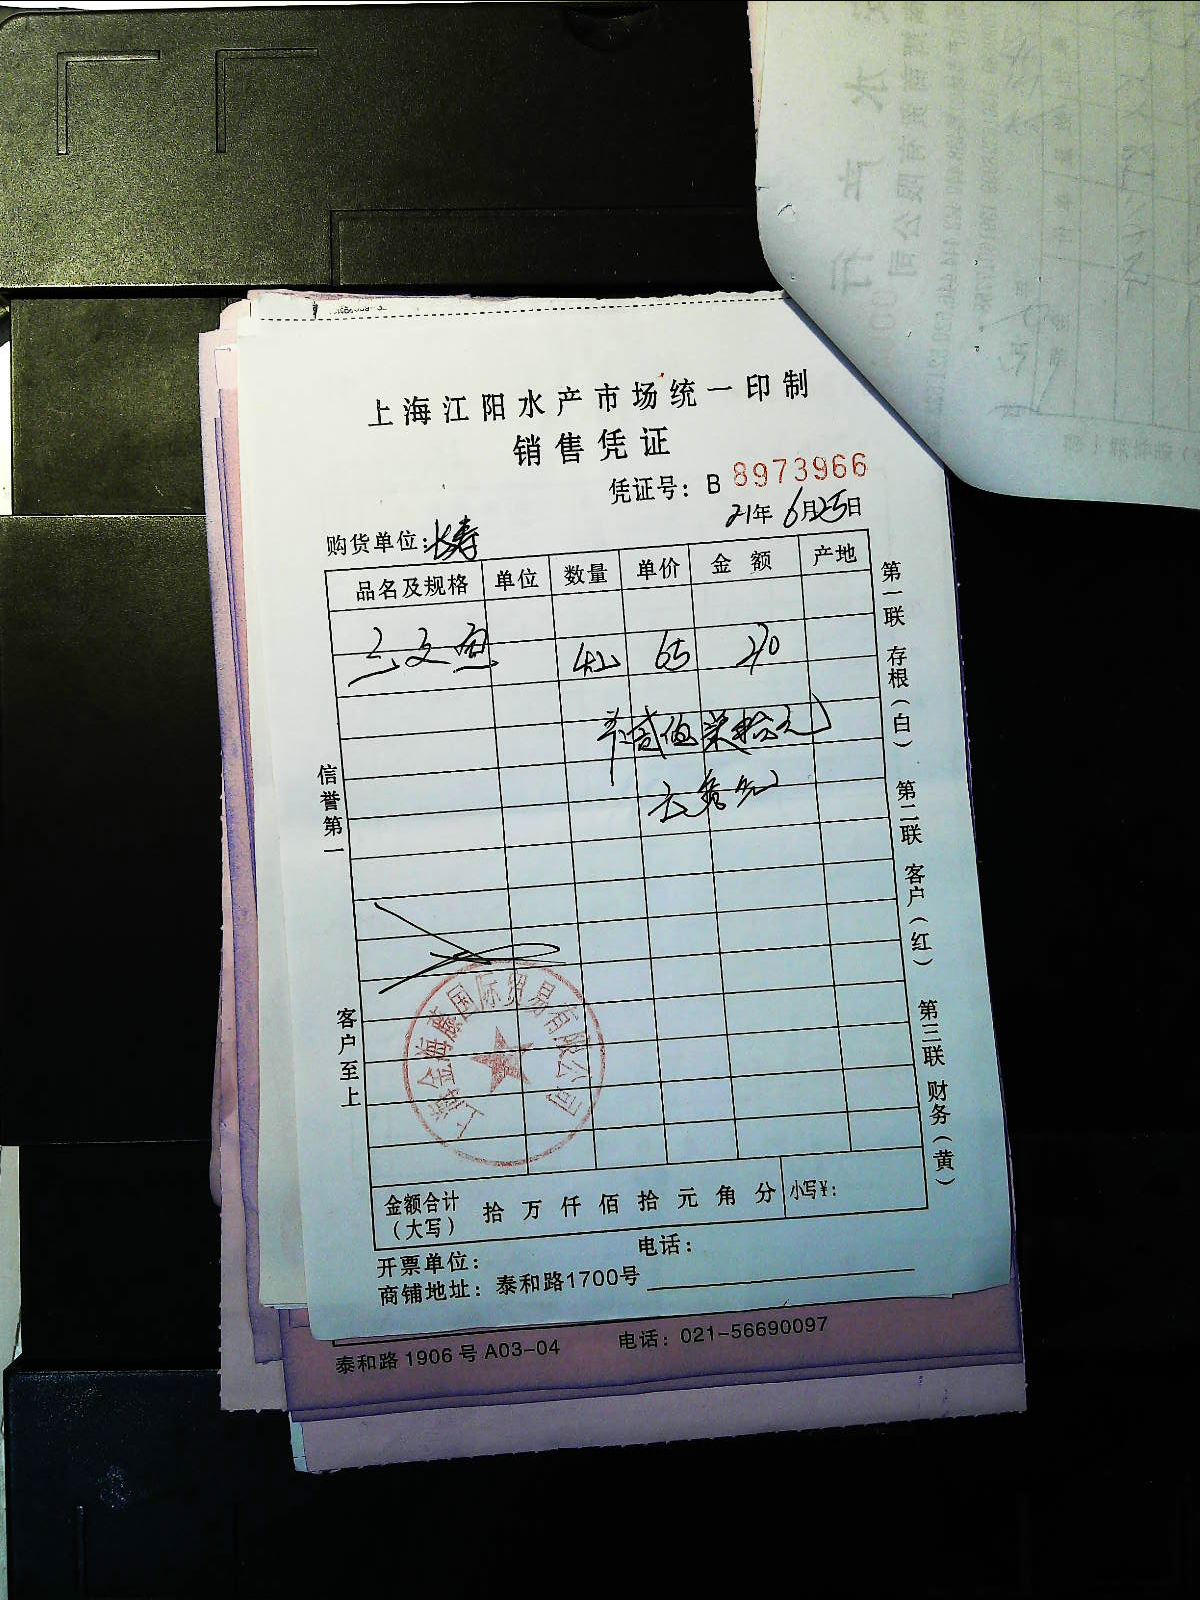 上海江阳水产市场统一印制
销售凭证
凭证号：B 8973966
21年 6月25日
购货单位：长寿
品名及规格 单位 数量 单价 金额 产地
三文鱼 65 270
贰佰柒拾元
信誉第一
客户至上
第一联 存根（白） 第二联 客户（红） 第三联 财务（黄）
上海金海藤国际贸易有限公司
金额合计（大写） 拾 万 仟 佰 拾 元 角 分 小写¥：
开票单位： 电话：
商铺地址：泰和路1700号
泰和路1906号A03-04 电话：021-56690097